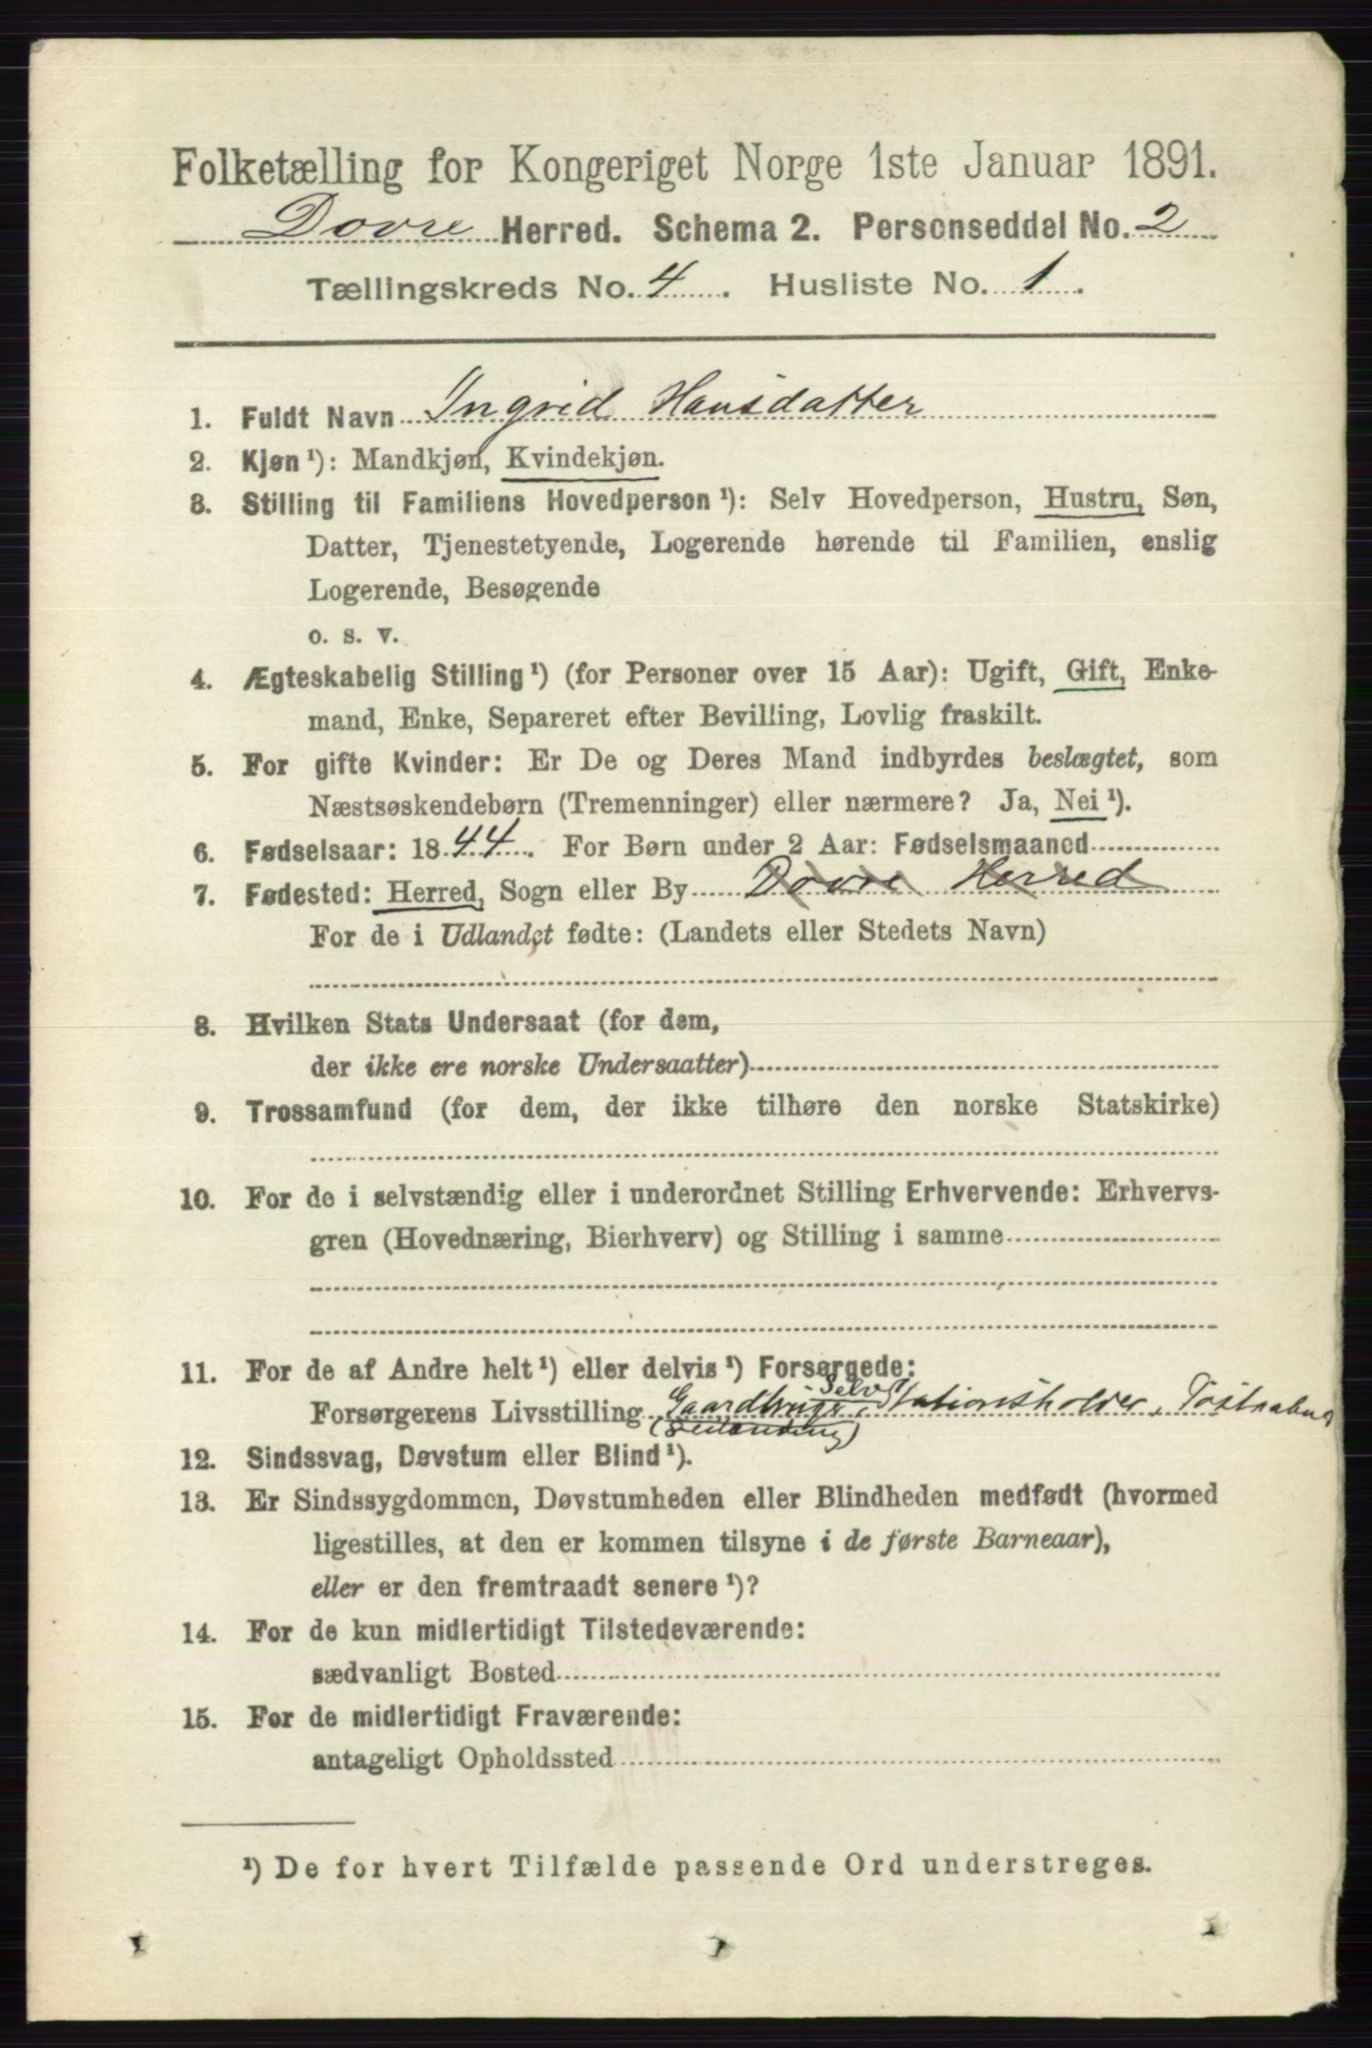 Folketælling for Kongeriget Norge 1ste Januar 1891.
Dovre Herred. Schema 2. Personseddel No. 2
Tællingskreds No. 4. Husliste No. 1.
1. Fuldt Navn Ingrid Hansdatter
2. Kjøn¹): Mandkjøn, Kvindekjøn.
3. Stilling til Familiens Hovedperson¹): Selv Hovedperson, Hustru, Søn,
Datter, Tjenestetyende, Logerende hørende til Familien, enslig
Logerende, Besøgende
o. s. v.
4. Ægteskabelig Stilling¹) (for Personer over 15 Aar): Ugift, Gift, Enke-
mand, Enke, Separeret efter Bevilling, Lovlig fraskilt.
5. For gifte Kvinder: Er De og Deres Mand indbyrdes beslægtet, som
Næstsøskendebørn (Tremenninger) eller nærmere? Ja, Nei¹).
6. Fødselsaar: 1844. For Børn under 2 Aar: Fødselsmaaned
7. Fødested: Herred, Sogn eller By Dovre Herred
For de i Udlandet fødte: (Landets eller Stedets Navn)
8. Hvilken Stats Undersaat (for dem,
der ikke ere norske Undersaatter)
9. Trossamfund (for dem, der ikke tilhøre den norske Statskirke)
10. For de i selvstændig eller i underordnet Stilling Erhvervende: Erhvervs-
gren (Hovednæring, Bierhverv) og Stilling i samme
11. For de af Andre helt¹) eller delvis¹) Forsørgede:
Selv
Forsørgerens Livsstilling Gaardbruger, Stationsholder,
12. Sindssvag, Døvstum eller Blind¹).
13. Er Sindssygdommen, Døvstumheden eller Blindheden medfødt (hvormed
ligestilles, at den er kommen tilsyne i de første Barneaar),
eller er den fremtraadt senere¹)?
14. For de kun midlertidigt Tilstedeværende:
sædvanligt Bosted
15. For de midlertidigt Fraværende:
antageligt Opholdssted
¹) De for hvert Tilfælde passende Ord understreges.